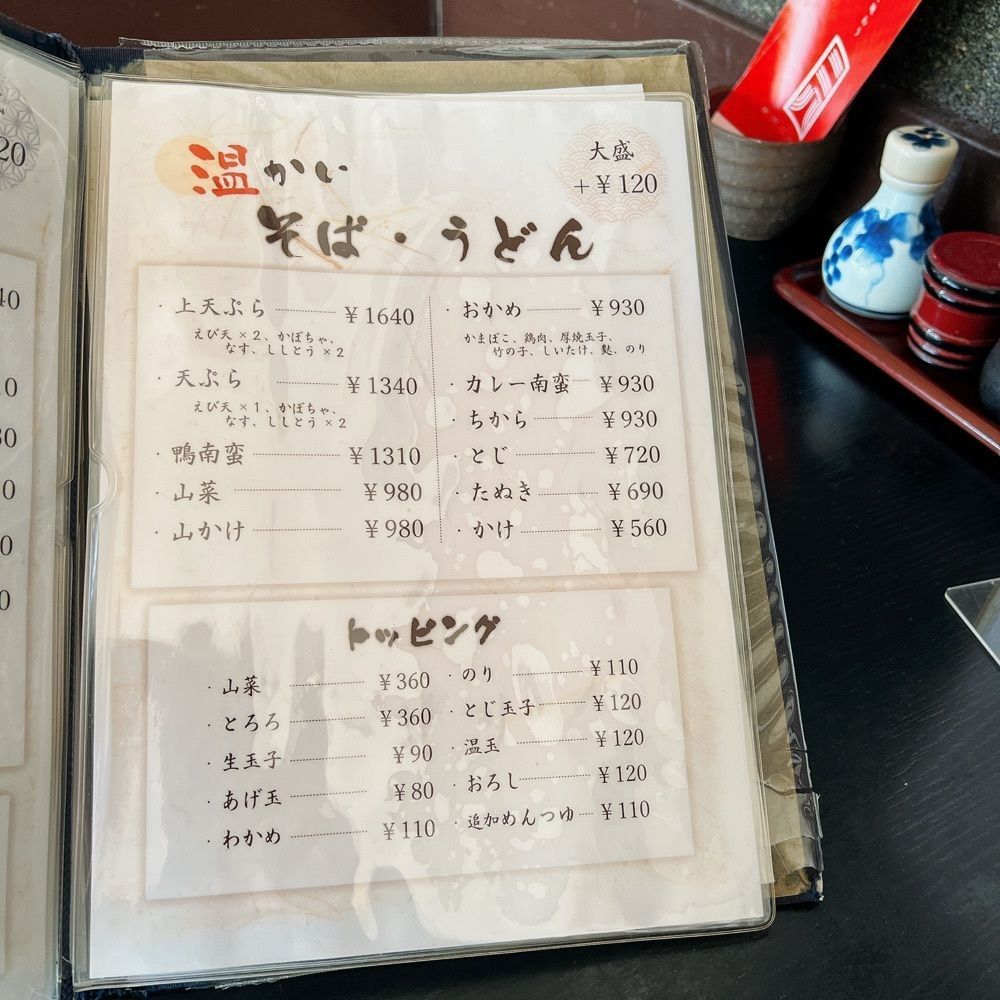 温かい
そば・うどん
大盛
+¥120
・上天ぷら ¥1640
えび天×2、かぼちゃ、
なす、ししとう×2
・天ぷら ¥1340
えび天×1、かぼちゃ、
なす、ししとう×2
・鴨南蛮 ¥1310
・山菜 ¥980
・山かけ ¥980
・おかめ ¥930
かまぼこ、鶏肉、厚焼玉子、
竹の子、しいたけ、麩、のり
・カレー南蛮 ¥930
・ちから ¥930
・とじ ¥720
・たぬき ¥690
・かけ ¥560
トッピング
・山菜 ¥360
・とろろ ¥360
・生玉子 ¥90
・あげ玉 ¥80
・わかめ ¥110
・のり ¥110
・とじ玉子 ¥120
・温玉 ¥120
・おろし ¥120
・追加めんつゆ ¥110